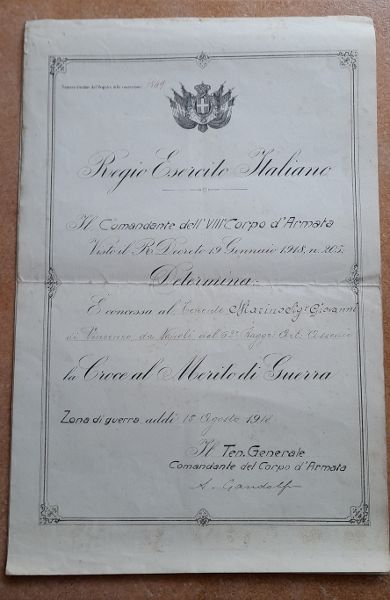 Numero d'ordine del Registro delle concessioni
Regio Esercito Italiano
Il Comandante dell'VIII Corpo d'Armata
Visto il R. Decreto 19 Gennaio 1918, n. 205
Determina:
È concessa al Tenente Marino Sig. Giovanni
di Vincenzo, da Napoli del 62° Ragg. Art. Assedio
la Croce al Merito di Guerra
Zona di guerra, addì 18 Agosto 1918
Il Ten. Generale
Comandante del Corpo d'Armata
A. Gandolfi